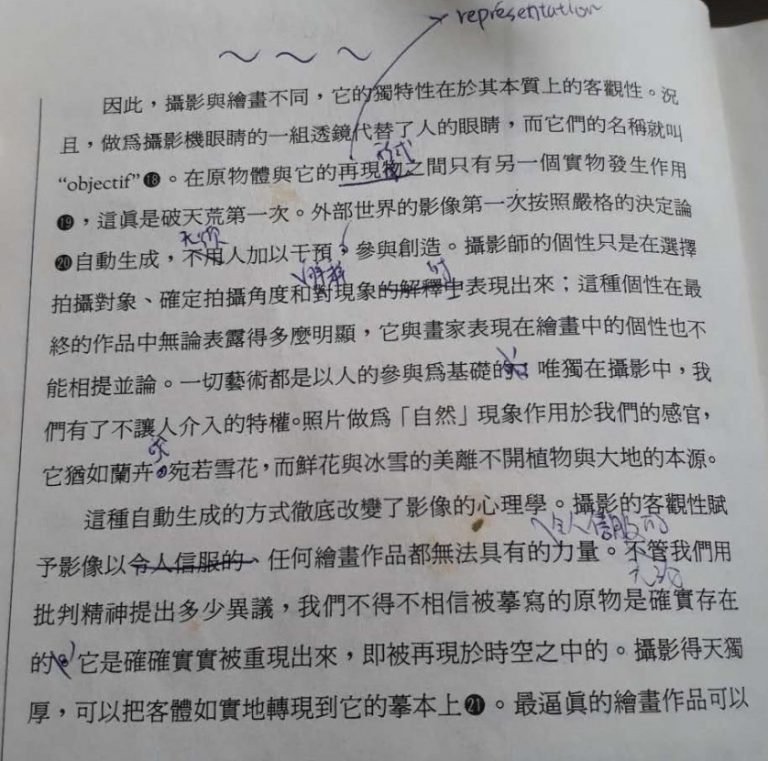 représentation
因此，攝影與繪畫不同，它的獨特性在於其本質上的客觀性。況
且，做爲攝影機眼睛的一組透鏡代替了人的眼睛，而它們的名稱就叫
“objectif”⓲。在原物體與它的再現物之間只有另一個實物發生作用
⓳，這眞是破天荒第一次。外部世界的影像第一次按照嚴格的決定論
⓴自動生成，不用人加以干預，參與創造。攝影師的個性只是在選擇
拍攝對象、確定拍攝角度和對現象的解釋中表現出來；這種個性在最
終的作品中無論表露得多麼明顯，它與畫家表現在繪畫中的個性也不
能相提並論。一切藝術都是以人的參與爲基礎的；唯獨在攝影中，我
們有了不讓人介入的特權。照片做爲「自然」現象作用於我們的感官，
它猶如蘭卉，宛若雪花，而鮮花與冰雪的美離不開植物與大地的本源。
這種自動生成的方式徹底改變了影像的心理學。攝影的客觀性賦
令人信服的
予影像以令人信服的、任何繪畫作品都無法具有的力量。不管我們用
批判精神提出多少異議，我們不得不相信被摹寫的原物是確實存在
的，它是確確實實被重現出來，即被再現於時空之中的。攝影得天獨
厚，可以把客體如實地轉現到它的摹本上㉑。最逼眞的繪畫作品可以